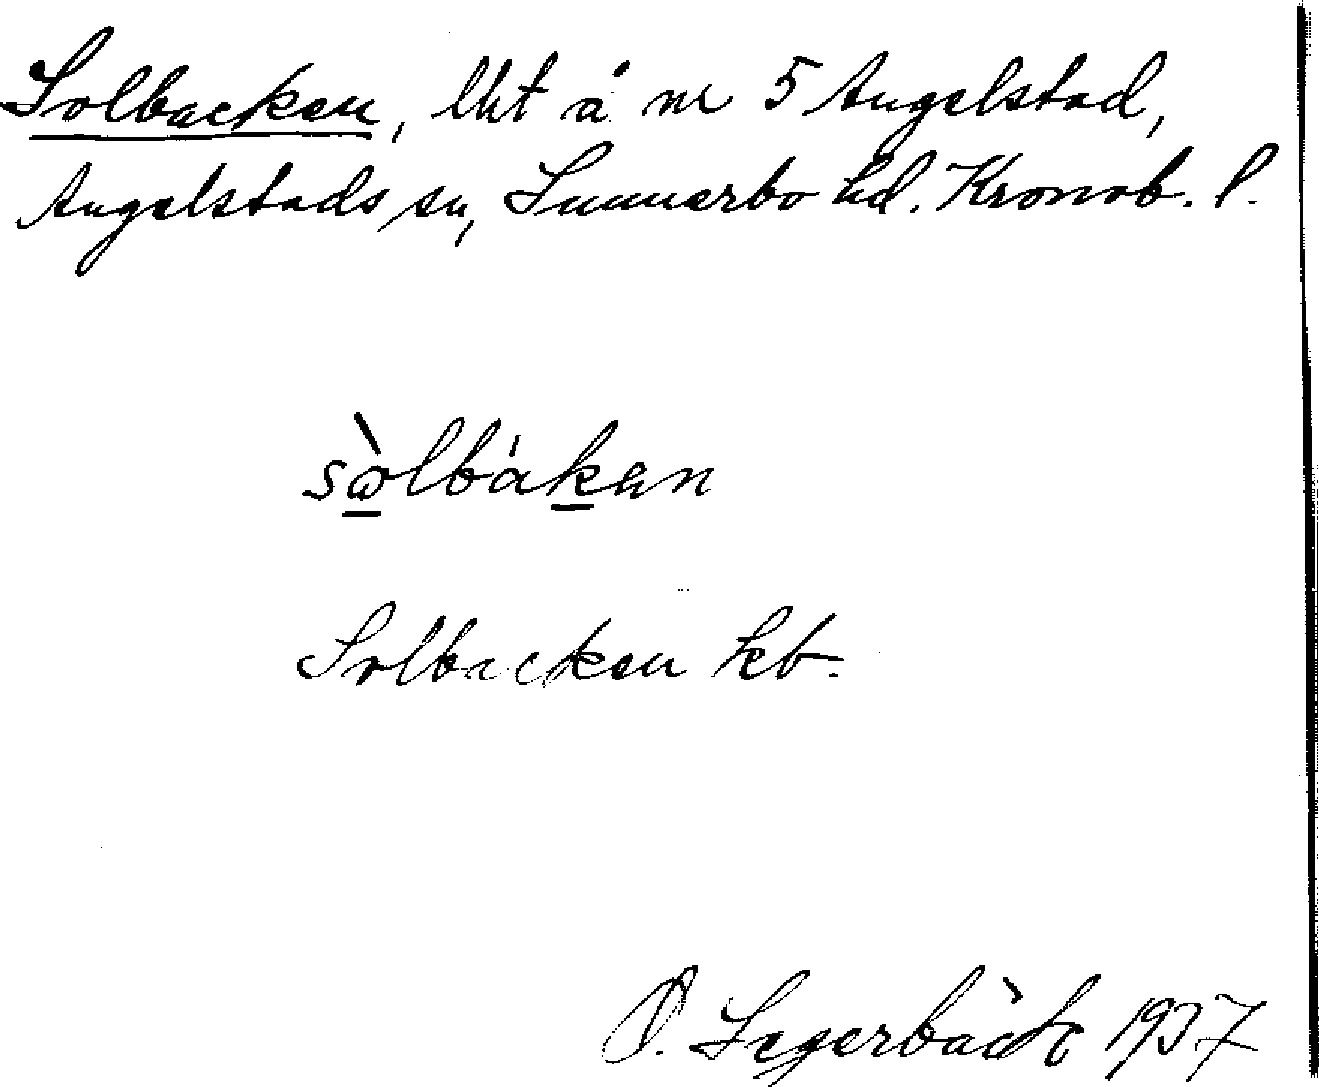 Solbacken, lht å nr 5 Angelstad,
Angelstads sn, Sunnerbo hd. Kronob. l.
sὼlbákən
Solbacken kb.
O. Segerbäck 1937